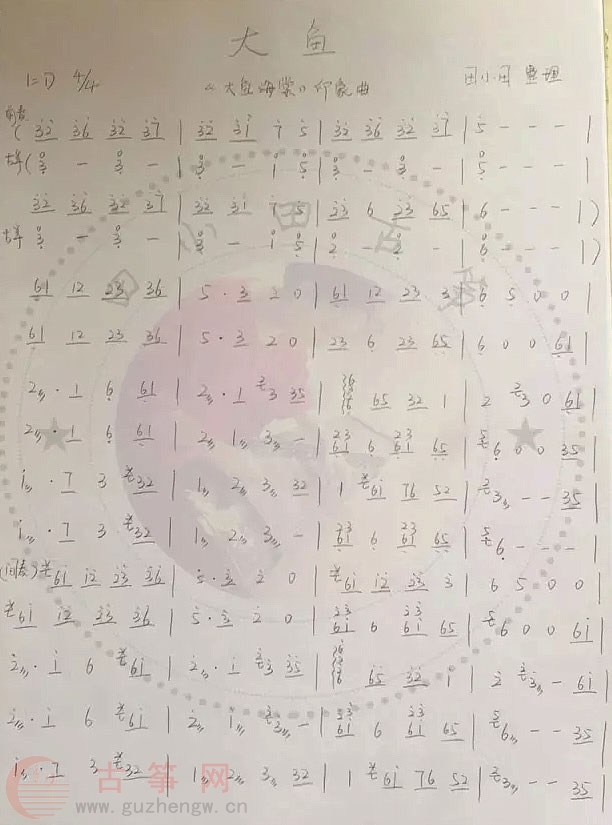 大鱼
1=D 4/4 《大鱼海棠》印象曲 田小田 整理
前奏
( 32 36 32 37 | 32 31 7 5 | 32 36 32 37 | 5 - - - |
( 3 - 3 - | 3 - i 5 | 3 - 3 - | 5 - - - |
32 36 32 37 | 32 31 7 5 | 23 6 23 65 | 6 - - - | )
3 - 3 - | 3 - i 5 | 2 - 2 - | 6 - - - | )
61 12 23 36 | 5 · 3 2 0 | 61 12 23 3 | 6 5 0 0 |
61 12 23 36 | 5 · 3 2 0 | 23 6 23 65 | 6 0 0 61 |
2 · 1 6 61 | 2 · 1 3 35 | 65 32 1 | 2 3 0 61 |
2 · 1 6 61 | 2 1 3 - | 23 61 6 23 61 65 | 6 0 0 35 |
i · 7 3 32 | 1 2 3 32 | 1 61 76 52 | 3 - - 35 |
i · 7 3 32 | 1 2 3 - | 23 61 6 23 61 65 | 6 - - - |
(间奏) 61 12 23 36 | 5 · 3 2 0 | 61 12 23 3 | 6 5 0 0 |
61 12 23 36 | 5 · 3 2 0 | 23 61 6 23 61 65 | 6 0 0 61 |
2 · i 6 61 | 2 · i 3 35 | 65 32 i | 2 3 - 61 |
2 · i 6 61 | 2 i 3 - | 23 61 6 23 61 65 | 6 - - 35 |
i · 7 3 32 | 1 2 3 32 | 1 61 76 52 | 3 - - 35 |
古筝网
www.guzhengw.cn